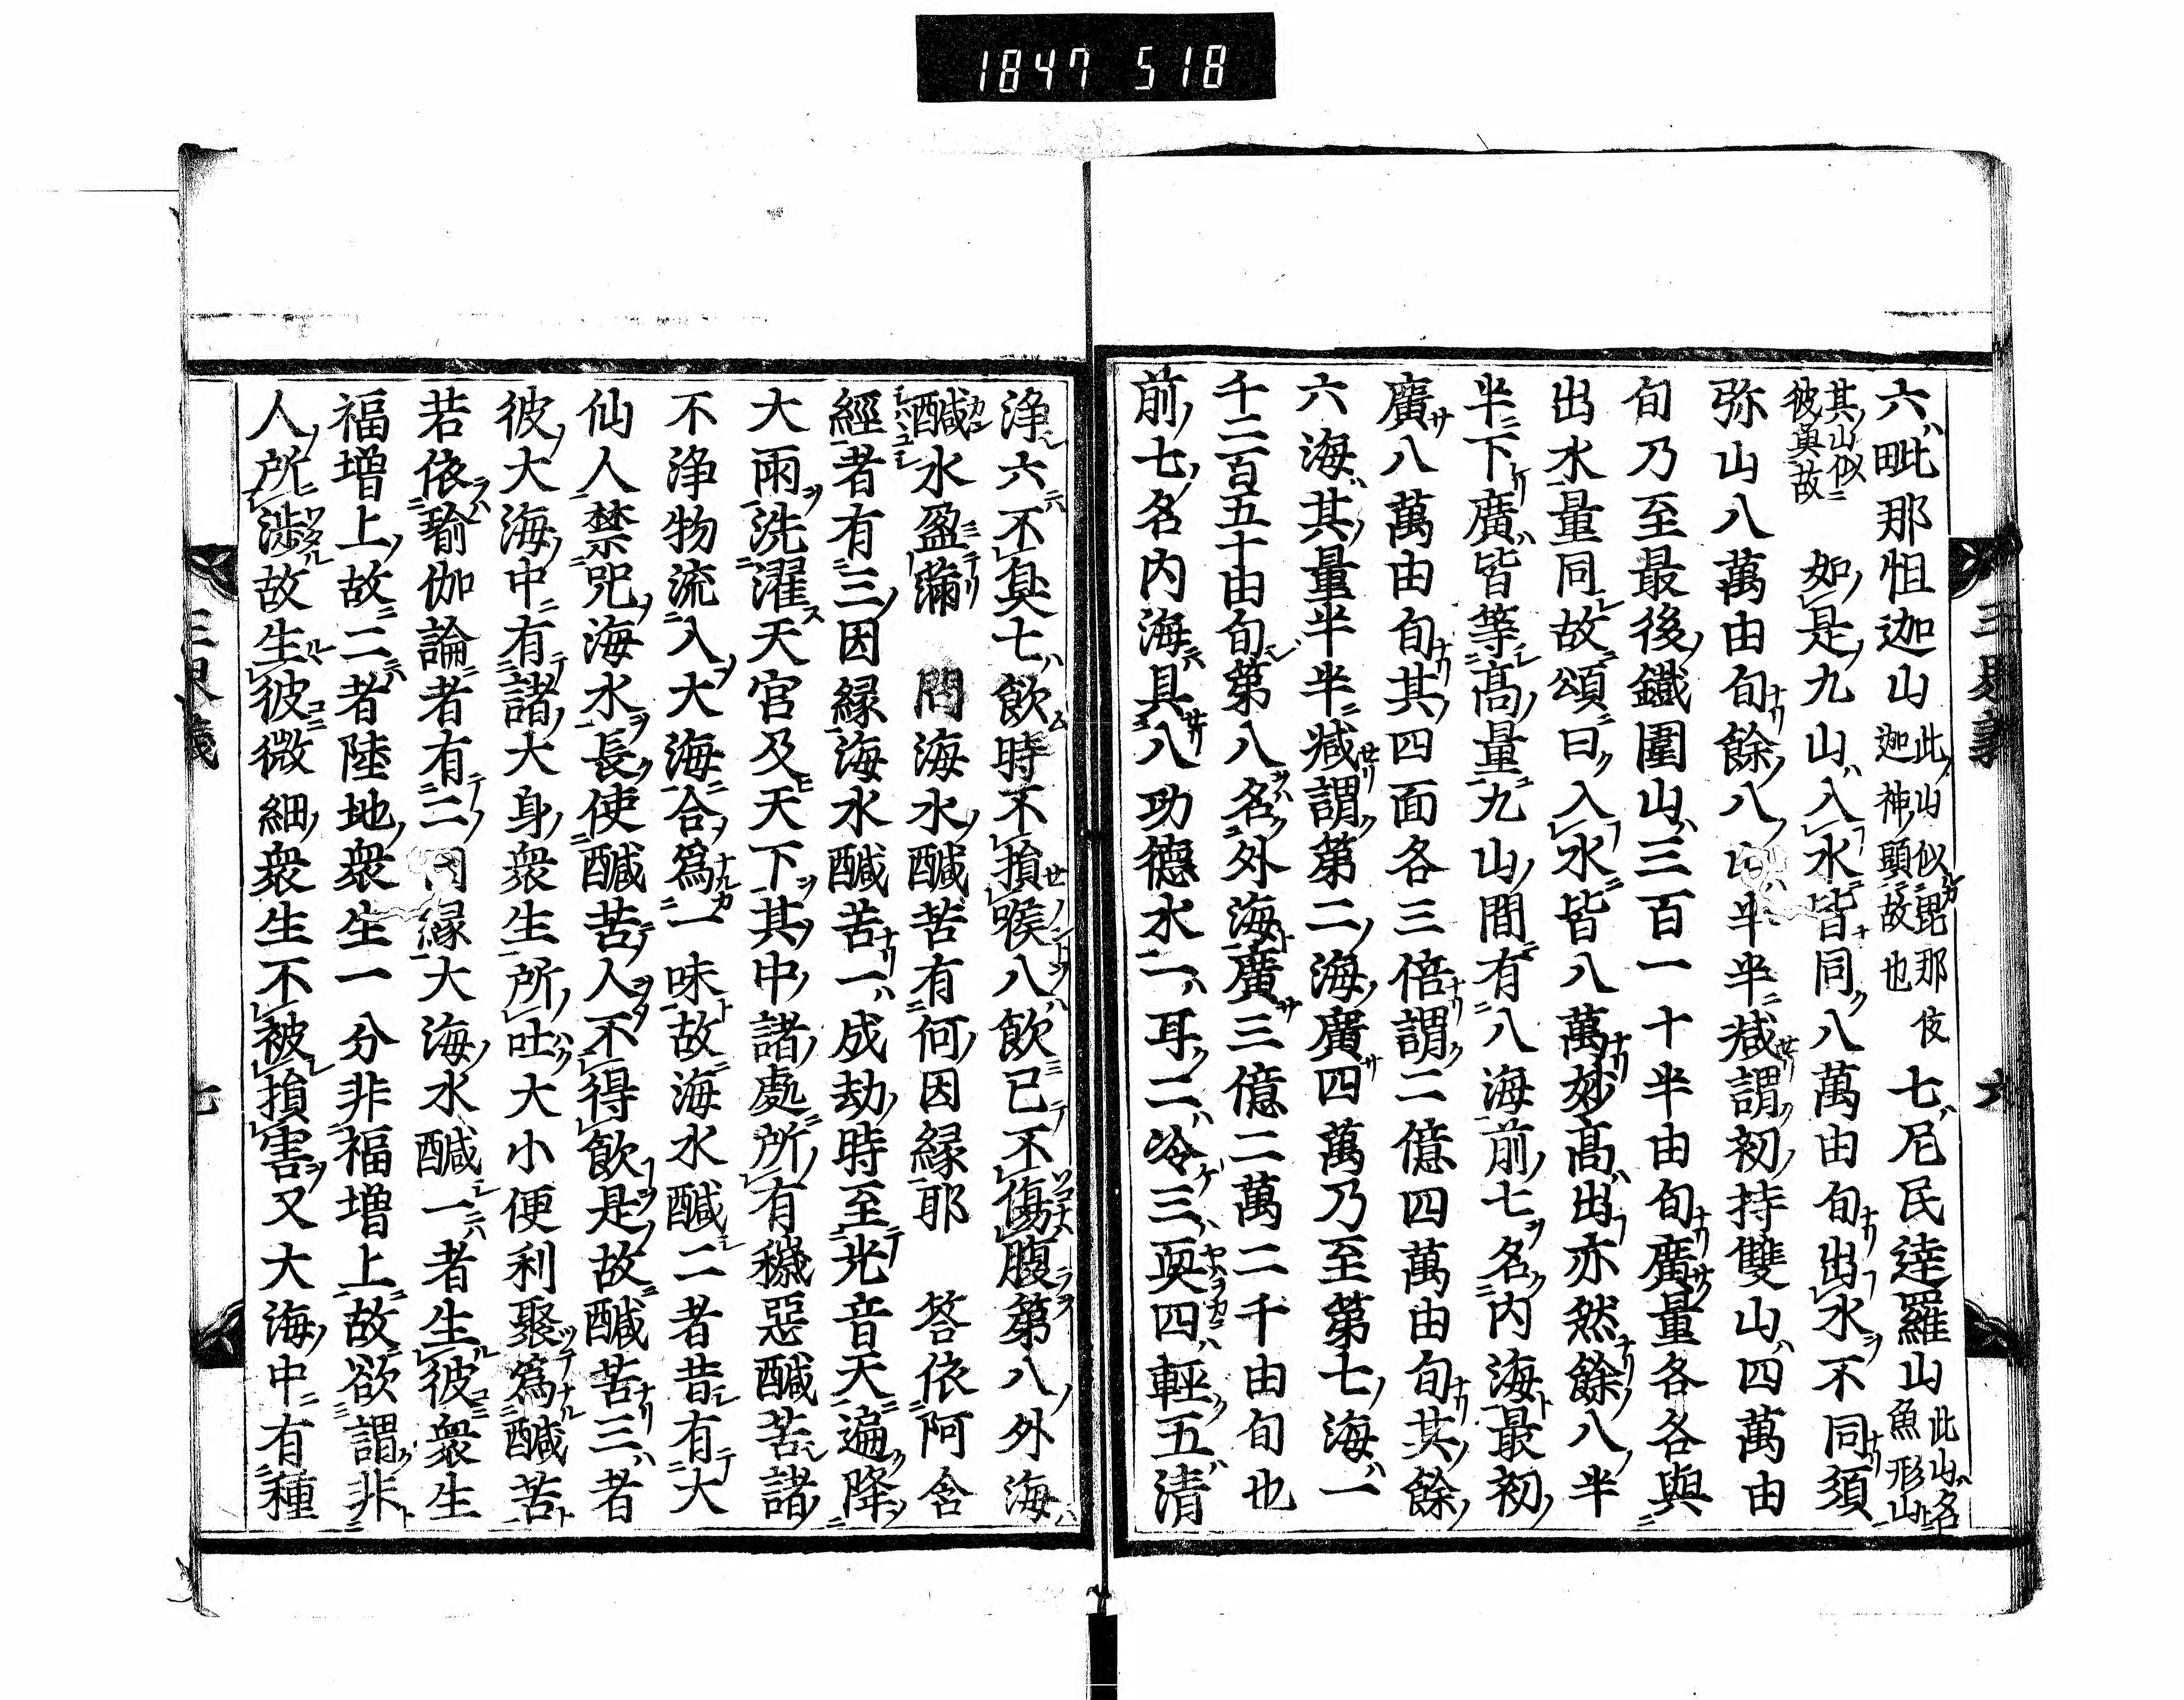 1847 518
六毗那怛迦山此山似毘那伎迦神頭故也七尼民達羅山此山名魚形山
其山似彼奠故 如是九山入水皆同八萬由旬出水不同須
弥山八萬由旬餘八半半减謂初持雙山四萬由
旬乃至最後鐵圍山三百一十半由旬廣量各各與
出水量同故頌曰入水皆八萬妙高出亦然餘八半
半下廣皆等高量九山間有八海前七名内海最初
廣八萬由旬其四面各三倍謂二億四萬由旬其餘
六海其量半半减謂第二海廣四萬乃至第七海一
千二百五十由旬第八名外海廣三億二萬二千由旬也
前七名内海具八功德水一耳二冷三耎四輕五清
六
浄六不臭七飲時不損喉八飲已不傷腹第八外海
醎水盈滿 問海水醎苦有何因縁耶 答依阿含
經者有三因縁海水醎苦一成劫時至光音天遍降
大雨洗濯天宮及天下其中諸處所有穢惡醎苦諸
不浄物流入大海合爲一味故海水醎二者昔有大
仙人禁咒海水長使醎苦人不得飲是故醎苦三者
彼大海中有諸大身衆生所吐大小便利聚爲醎苦
若依瑜伽論者有二因縁大海水醎一者生彼衆生
福増上故二者陸地衆生一分非福増上故欲謂非
人所渉故生彼微細衆生不被損害又大海中有種
七